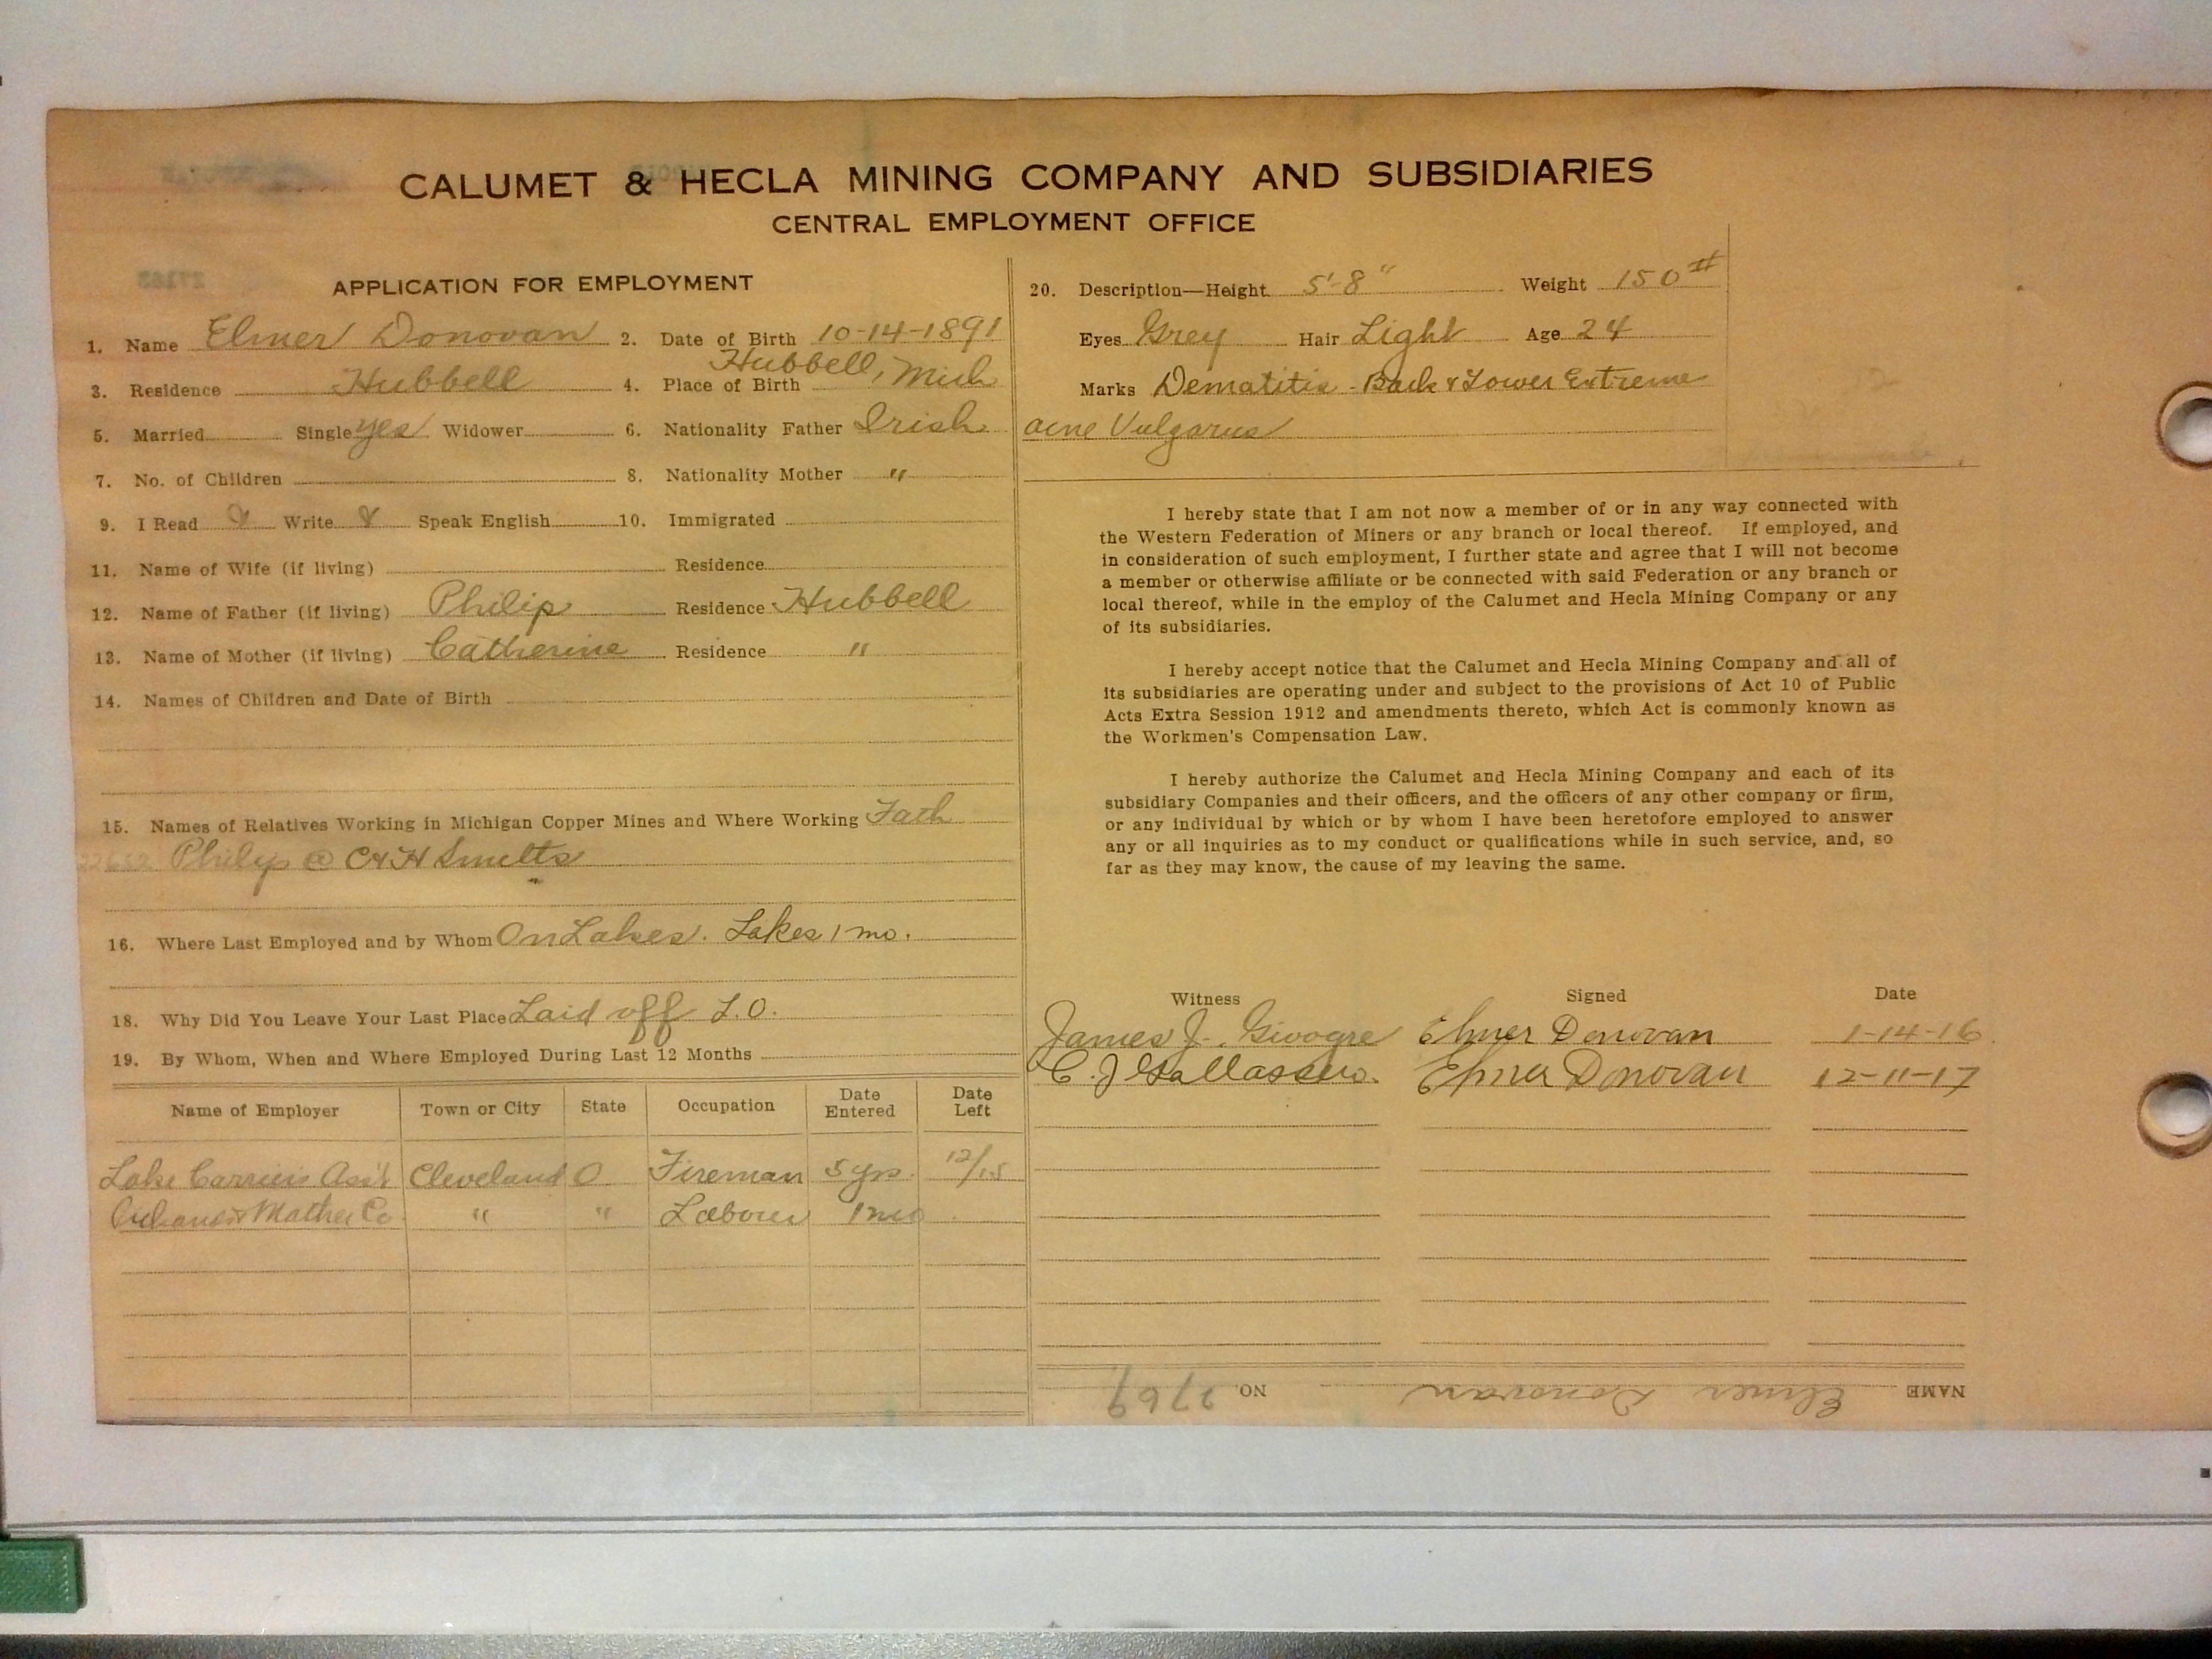 CALUMET & HECLA MINING COMPANY AND SUBSIDIARIES
CENTRAL EMPLOYMENT OFFICE
APPLICATION FOR EMPLOYMENT
1. Name Elmer Donovan 2. Date of Birth 10-14-1891
3. Residence Hubbell 4. Place of Birth Hubbell, Mich
5. Married Single yes Widower 6. Nationality Father Irish
7. No. of Children 8. Nationality Mother "
9. I Read & Write & Speak English 10. Immigrated
11. Name of Wife (if living) Residence
12. Name of Father (if living) Philip Residence Hubbell
13. Name of Mother (if living) Catherine Residence "
14. Names of Children and Date of Birth
15. Names of Relatives Working in Michigan Copper Mines and Where Working Fath
Philip @ C&H Smelts
16. Where Last Employed and by Whom On Lakes. Lakes 1 mo.
18. Why Did You Leave Your Last Place Laid off L.O.
19. By Whom, When and Where Employed During Last 12 Months
Name of Employer Town or City State Occupation Date Entered Date Left
Lake Carriers Ass't Cleveland O Fireman 5 yrs. 12/15
Mather Co. " " Laborer 1 mo
20. Description—Height 5'-8" Weight 150#
Eyes Grey Hair Light Age 24
Marks Dematitis - Back & Lower Extreme
acne Vulgarus
I hereby state that I am not now a member of or in any way connected with
the Western Federation of Miners or any branch or local thereof. If employed, and
in consideration of such employment, I further state and agree that I will not become
a member or otherwise affiliate or be connected with said Federation or any branch or
local thereof, while in the employ of the Calumet and Hecla Mining Company or any
of its subsidiaries.
I hereby accept notice that the Calumet and Hecla Mining Company and all of
its subsidiaries are operating under and subject to the provisions of Act 10 of Public
Acts Extra Session 1912 and amendments thereto, which Act is commonly known as
the Workmen's Compensation Law.
I hereby authorize the Calumet and Hecla Mining Company and each of its
subsidiary Companies and their officers, and the officers of any other company or firm,
or any individual by which or by whom I have been heretofore employed to answer
any or all inquiries as to my conduct or qualifications while in such service, and, so
far as they may know, the cause of my leaving the same.
Witness Signed Date
James J. Elmer Donovan 1-14-16
C. J. Elmer Donovan 12-11-17
NAME Elmer Donovan NO.